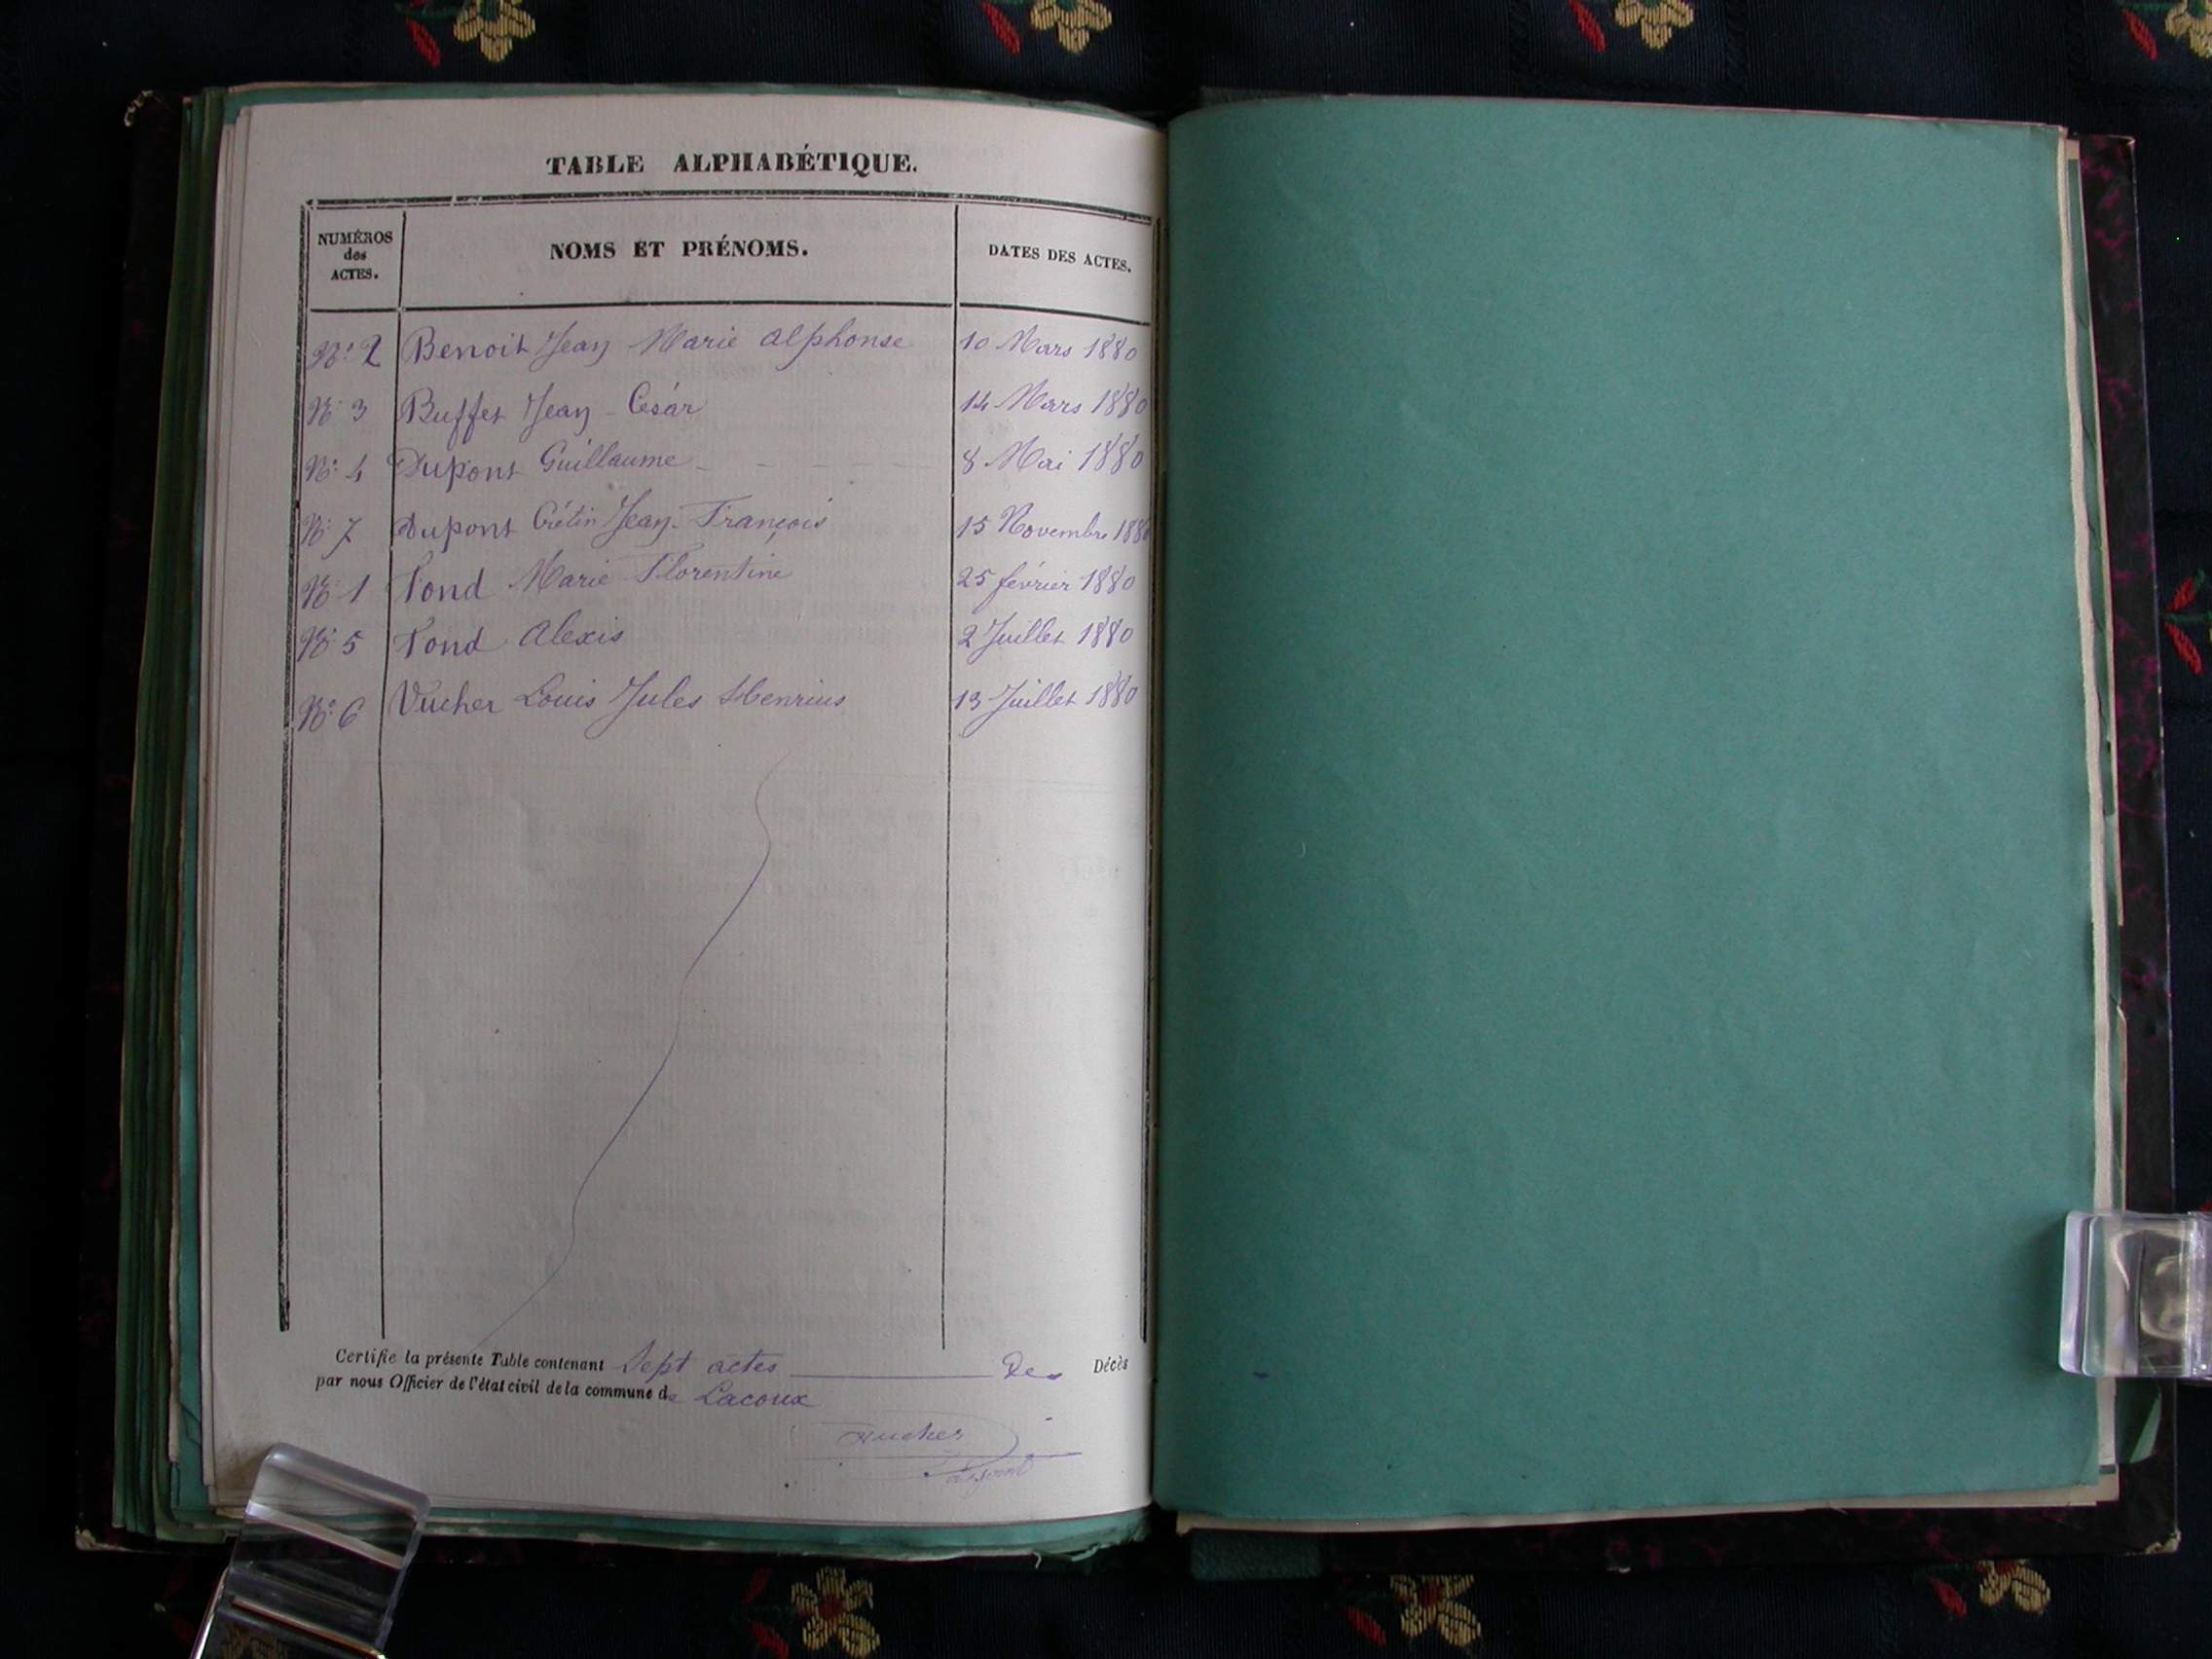 TABLE ALPHABÉTIQUE.
NUMÉROS
des
ACTES.
NOMS ET PRÉNOMS.
DATES DES ACTES.
N° 2 Benoit Jean Marie Alphonse 10 Mars 1880
N° 3 Buffet Jean-César 14 Mars 1880
N° 4 Dupont Guillaume 8 Mai 1880
N° 7 Dupont Crétin Jean-François 15 Novembre 1880
N° 1 Fond Marie Florentine 25 février 1880
N° 5 Fond Alexis 2 Juillet 1880
N° 6 Vucher Louis Jules Henrius 13 Juillet 1880
Certifie la présente Table contenant Sept actes De Décès
par nous Officier de l'état civil de la commune de Lacoux
Vucher